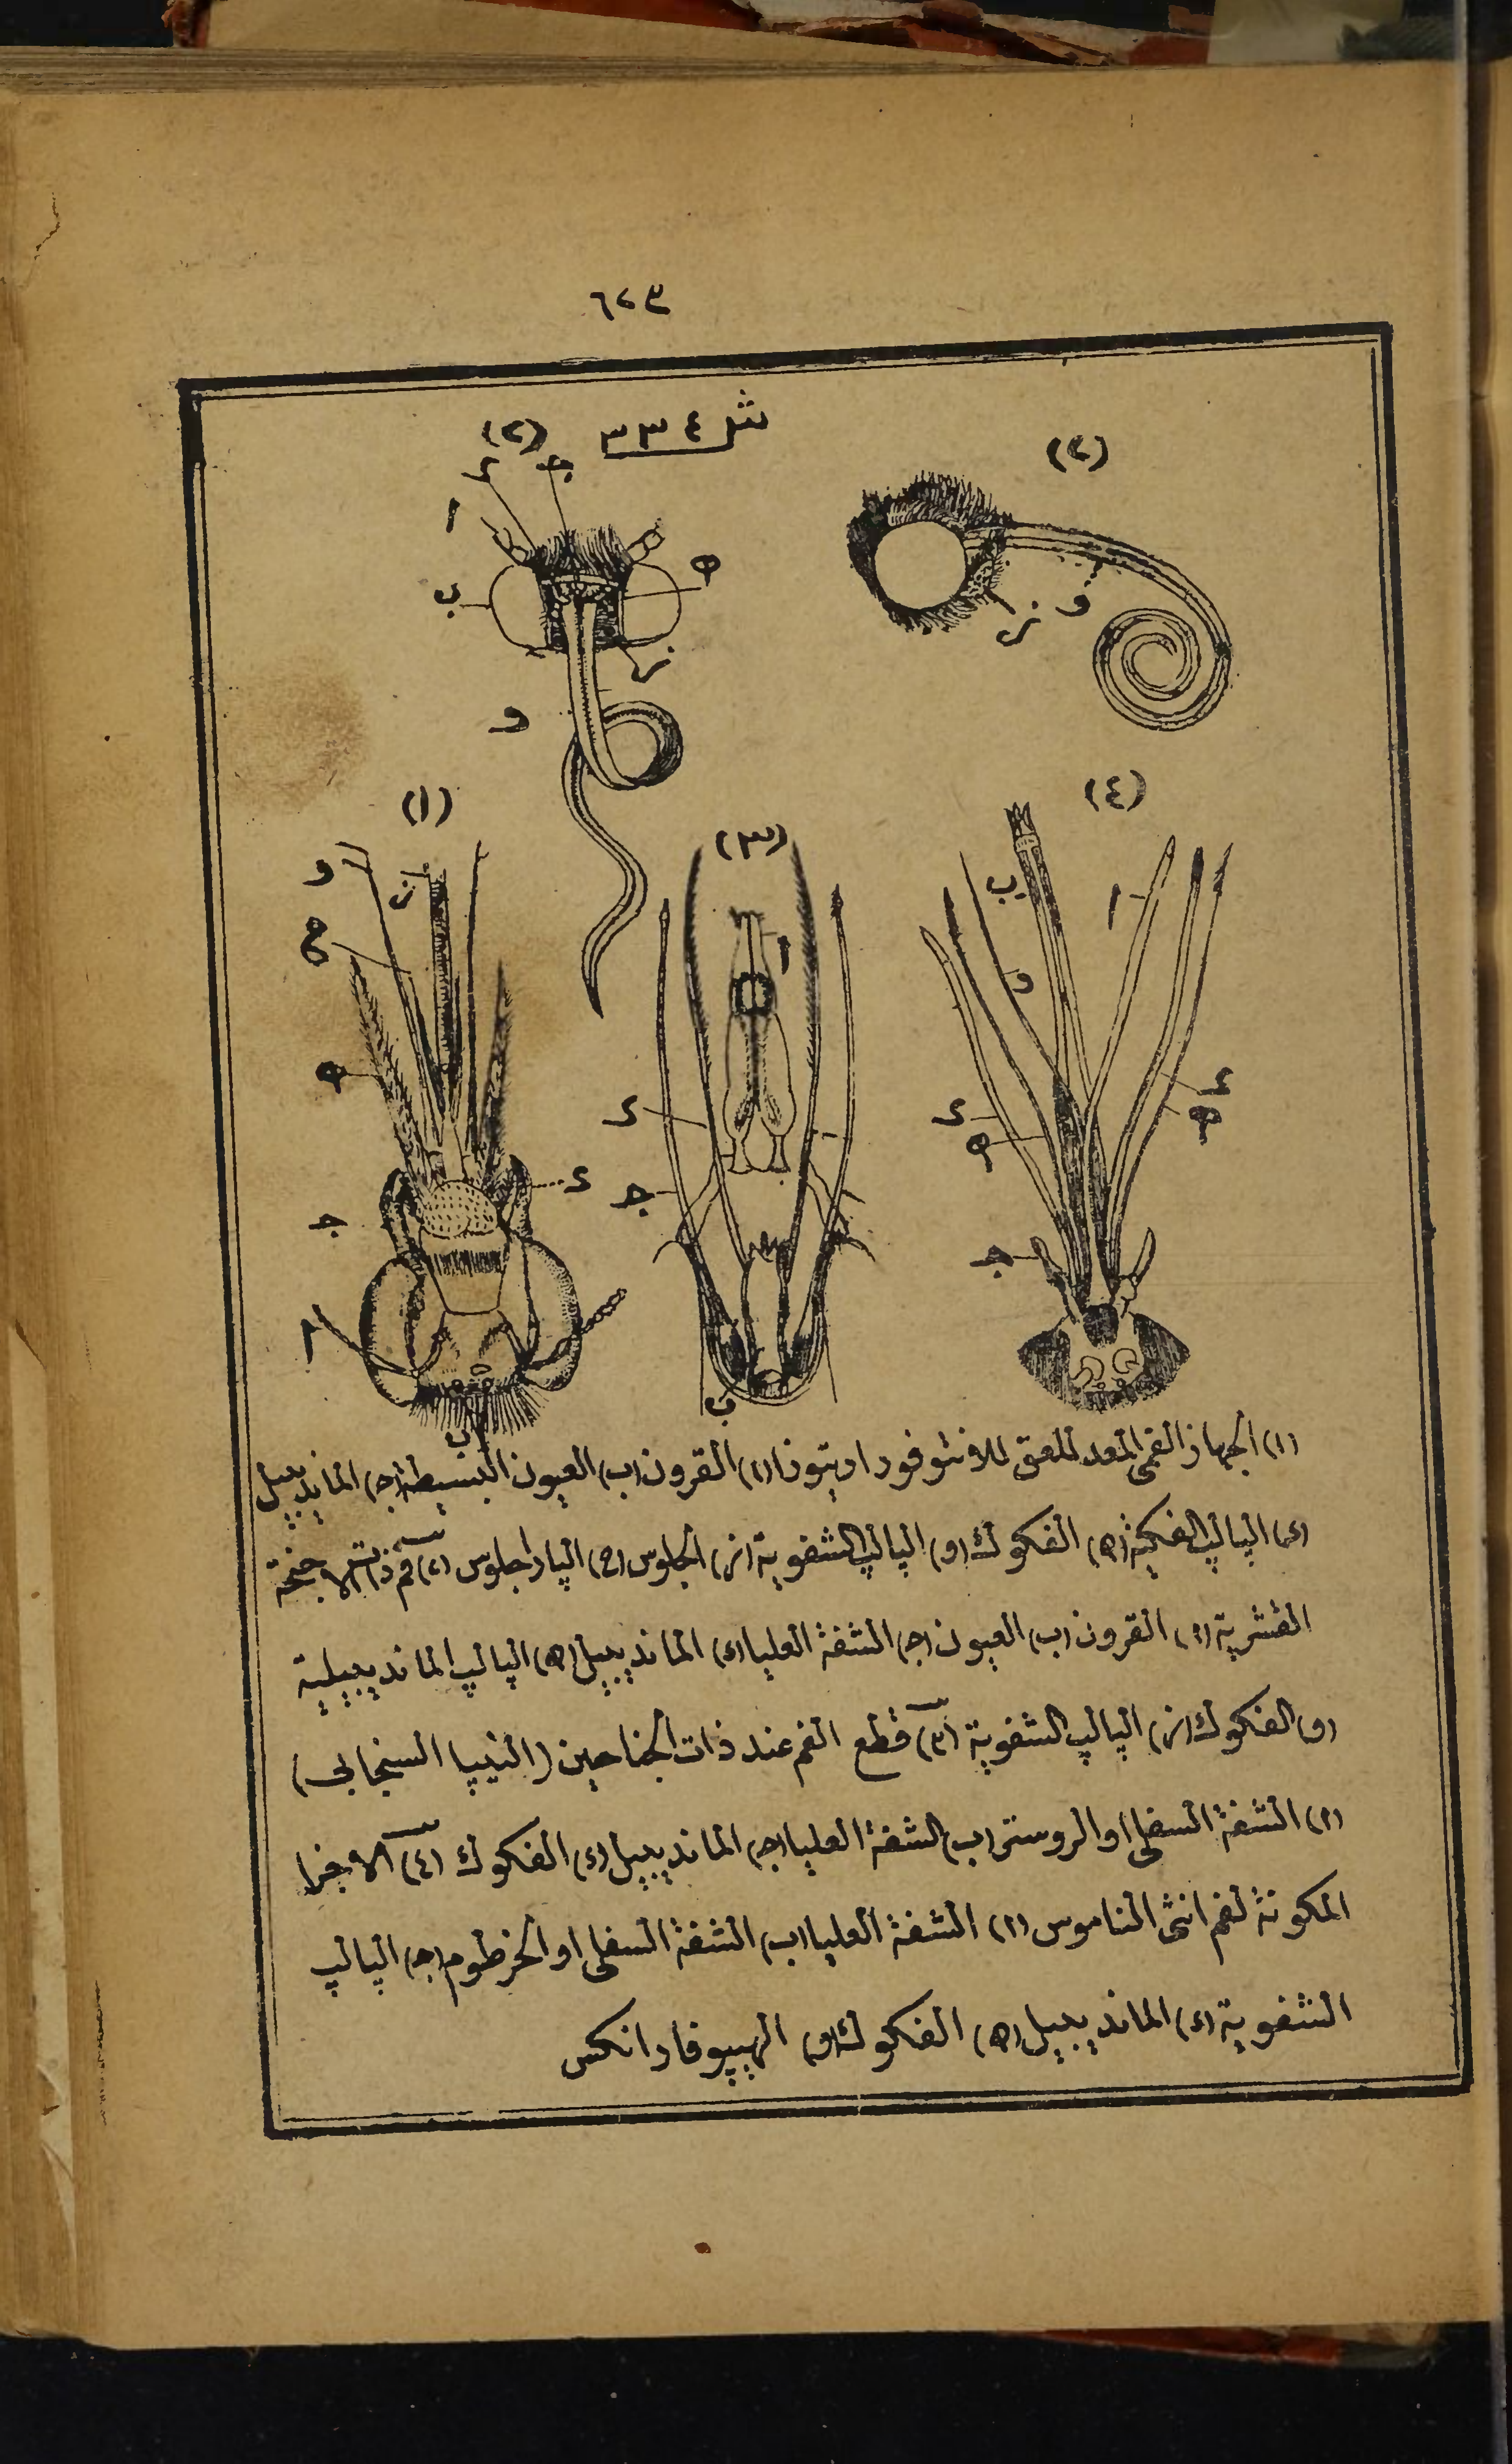 ٦٢٣
شكل ٣٣٤
(٢)
(٢)
ج
د
ا
ه
ب
ز
و
و
ز
(١)
(٣)
(٤)
و
ز
ح
ه
د
ج
ا
ب
ا
د
ج
ب
ب
ا
و
د
ه
د
ه
ج
(١) الجهاز الفمى المعد للعق للانثوفورا ريتوزا (ا) القرون (ب) العيون البسيطة (ج) الماندبيل
(د) الپالپ الفكية (ه) الفكوك (و) الپالپ الشفوية (ز) الجلوس (ح) الپاراجلوس (٢) فم ذات الاجنحة
القشرية (ا) القرون (ب) العيون (ج) الشفة العليا (د) الماندبيبل (ه) الپالپ الماندبيبلية
(و) الفكوك (ز) الپالپ الشفوية (٣) قطع الفم عند ذات الجناحين (النيپا السنجابى)
(ا) الشفة السفلى او الروسترو (ب) الشفة العليا (ج) الماندبيبل (د) الفكوك (٤) الاجزا
المكونة لفم انثى الناموس (ا) الشفة العليا (ب) الشفة السفلى او الخرطوم (ج) الپالپ
الشفوية (د) الماندبيبل (ه) الفكوك (و) الهيپوفارانكس